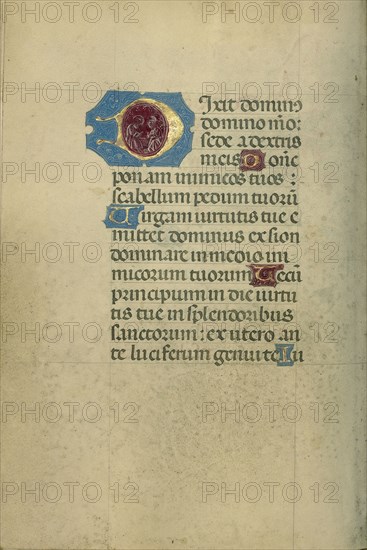 Dixit dominus
domino meo:
sede a dextris
meis Donec
ponam inimicos tuos:
scabellum pedum tuorū
Virgam virtutis tue e
mittet dominus ex sion
dominare in medio ini
micorum tuorum Tecū
principium in die virtu
tis tue in splendoribus
sanctorum: ex utero an
te luciferum genui te Iu